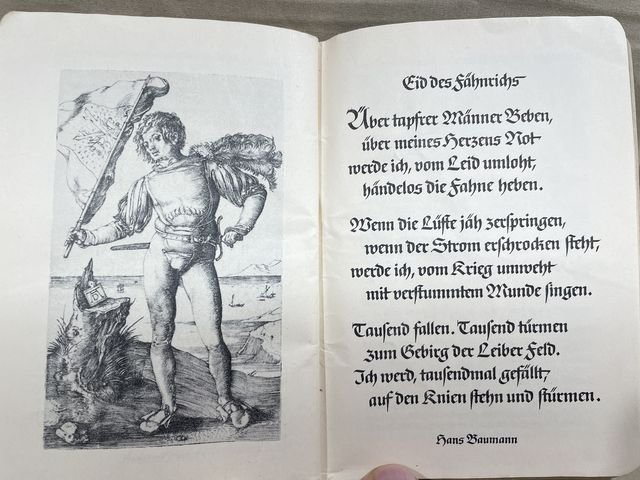 Eid des Fähnrichs
Über tapfrer Männer Beben,
über meines Herzens Not
werde ich, vom Leid umloht,
händelos die Fahne heben.
Wenn die Lüfte jäh zerspringen,
wenn der Strom erschrocken steht,
werde ich, vom Krieg umweht
mit verstummtem Munde singen.
Tausend fallen. Tausend türmen
zum Gebirg der Leiber Feld.
Ich werd, tausendmal gefällt,
auf den Knien stehn und stürmen.
Hans Baumann